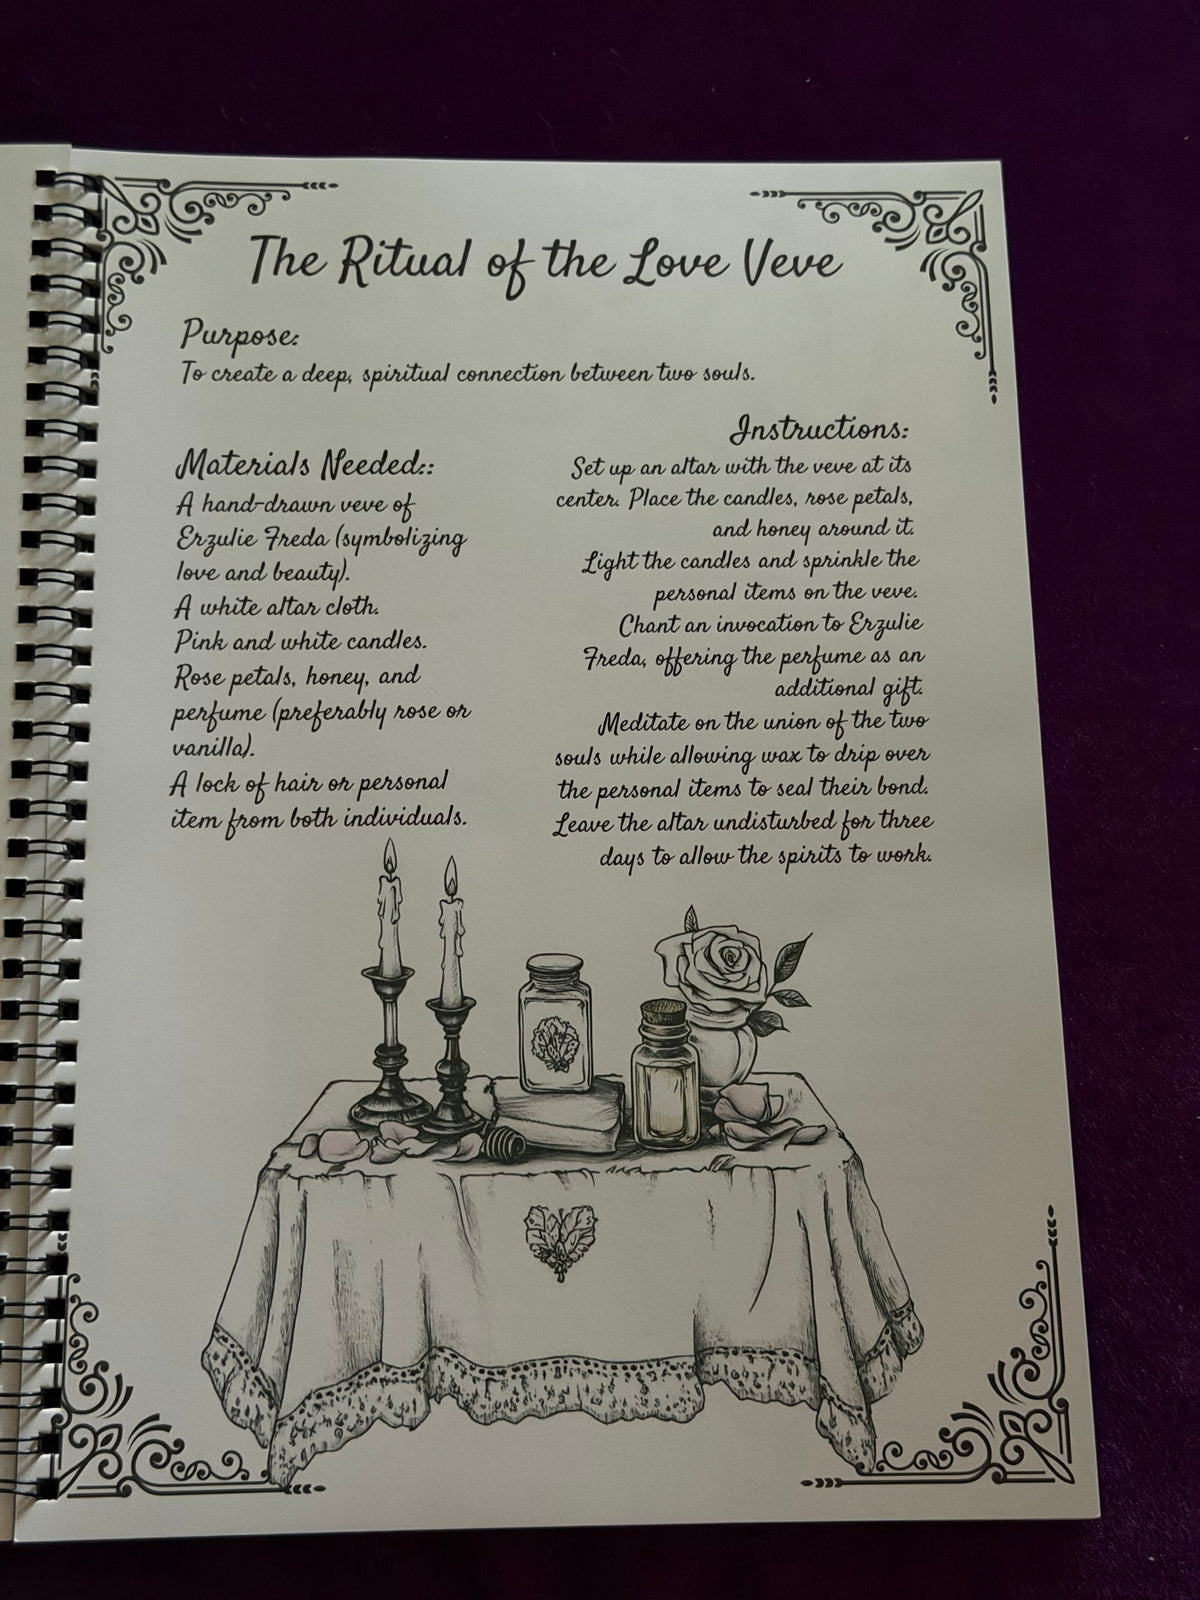 The Ritual of the Love Veve
Purpose:
To create a deep, spiritual connection between two souls.
Materials Needed::
A hand-drawn veve of
Erzulie Freda (symbolizing
love and beauty).
A white altar cloth.
Pink and white candles.
Rose petals, honey, and
perfume (preferably rose or
vanilla).
A lock of hair or personal
item from both individuals.
Instructions:
Set up an altar with the veve at its
center. Place the candles, rose petals,
and honey around it.
Light the candles and sprinkle the
personal items on the veve.
Chant an invocation to Erzulie
Freda, offering the perfume as an
additional gift.
Meditate on the union of the two
souls while allowing wax to drip over
the personal items to seal their bond.
Leave the altar undisturbed for three
days to allow the spirits to work.